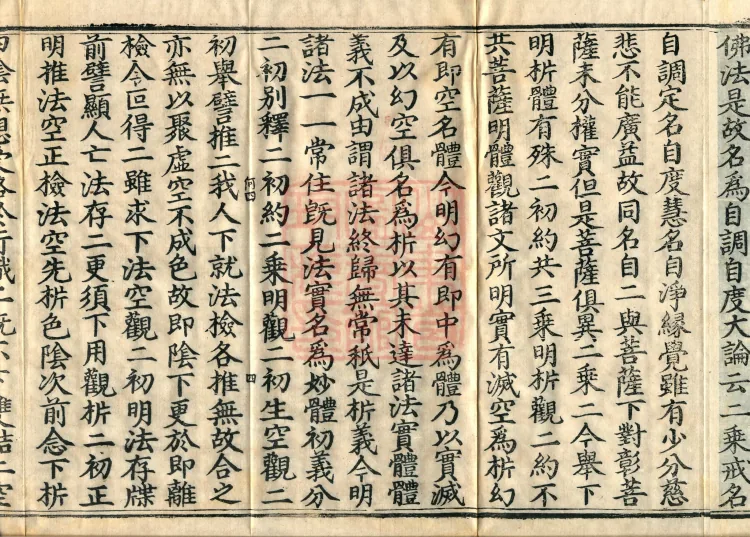 佛法是故名爲自調自度大論云二乘戒名
自調定名自度慧名自淨縁覺雖有少分慈
悲不能廣益故同名自二與菩薩下對彰菩
薩未分權實但是菩薩俱異二乘二今舉下
明析體有殊二初約共三乘明析觀二約不
共菩薩明體觀諸文所明實有滅空爲析幻
有即空名體今明幻有即中爲體乃以實滅
及以幻空俱名爲析以其未達諸法實體體
義不成由謂諸法終歸無常秖是析義今明
諸法一一常住旣見法實名爲妙體初義分
二初別釋二初約二乘明觀二初生空觀二
何四
四
初舉譬推二我人下就法檢各推無故合之
亦無以聚虛空不成色故即陰下更於即離
檢令叵得二雖求下法空觀二初明法存牒
前譬顯人亡法存二更須下用觀析二初正
明推法空正檢法空先析色陰次前念下析